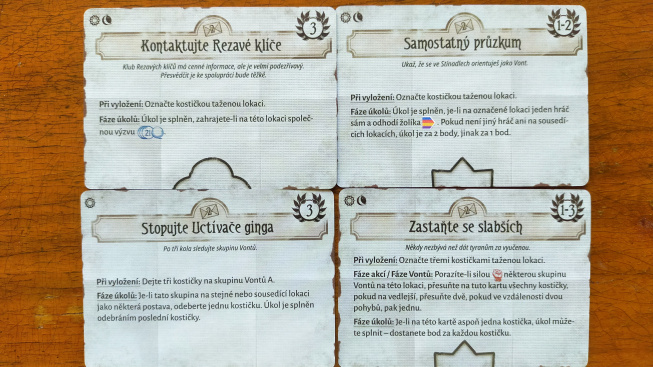 Kontaktujte Rezavé klíče
3
Klub Rezavých klíčů má cenné informace, ale je velmi podezřívavý.
Přesvědčit je ke spolupráci bude těžké.
Při vyložení: Označte kostičkou taženou lokaci.
Fáze úkolů: Úkol je splněn, zahrajete-li na této lokaci společ-
nou výzvu 21
Samostatný průzkum
1-2
Ukaž, že se ve Stínadlech orientuješ jako Vont.
Při vyložení: Označte kostičkou taženou lokaci.
Fáze úkolů: Úkol je splněn, je-li na označené lokaci jeden hráč
sám a odhodí žolíka . Pokud není jiný hráč ani na sousedí-
cích lokacích, úkol je za 2 body, jinak za 1 bod.
Stopujte Uctívače ginga
3
Po tři kola sledujte skupinu Vontů.
Při vyložení: Dejte tři kostičky na skupinu Vontů A.
Fáze úkolů: Je-li tato skupina na stejné nebo sousedící lokaci
jako některá postava, odeberte jednu kostičku. Úkol je splněn
odebráním poslední kostičky.
Zastaňte se slabších
1-3
Někdy nezbývá než dát tyranům za vyučenou.
Při vyložení: Označte třemi kostičkami taženou lokaci.
Fáze akcí / Fáze Vontů: Porazíte-li silou některou skupinu
Vontů na této lokaci, přesuňte na tuto kartu všechny kostičky,
pokud na vedlejší, přesuňte dvě, pokud ve vzdálenosti dvou
pohybů, pak jednu.
Fáze úkolů: Je-li na této kartě aspoň jedna kostička, úkol může-
te splnit – dostanete bod za každou kostičku.